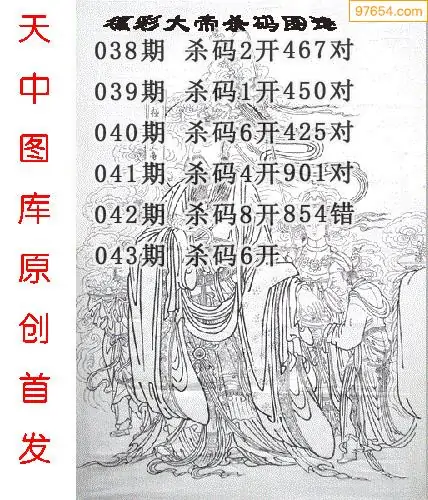 97654.com
福彩大帝杀码图谜
038期 杀码2开467对
039期 杀码1开450对
040期 杀码6开425对
041期 杀码4开901对
042期 杀码8开854错
043期 杀码6开
天中图库原创首发